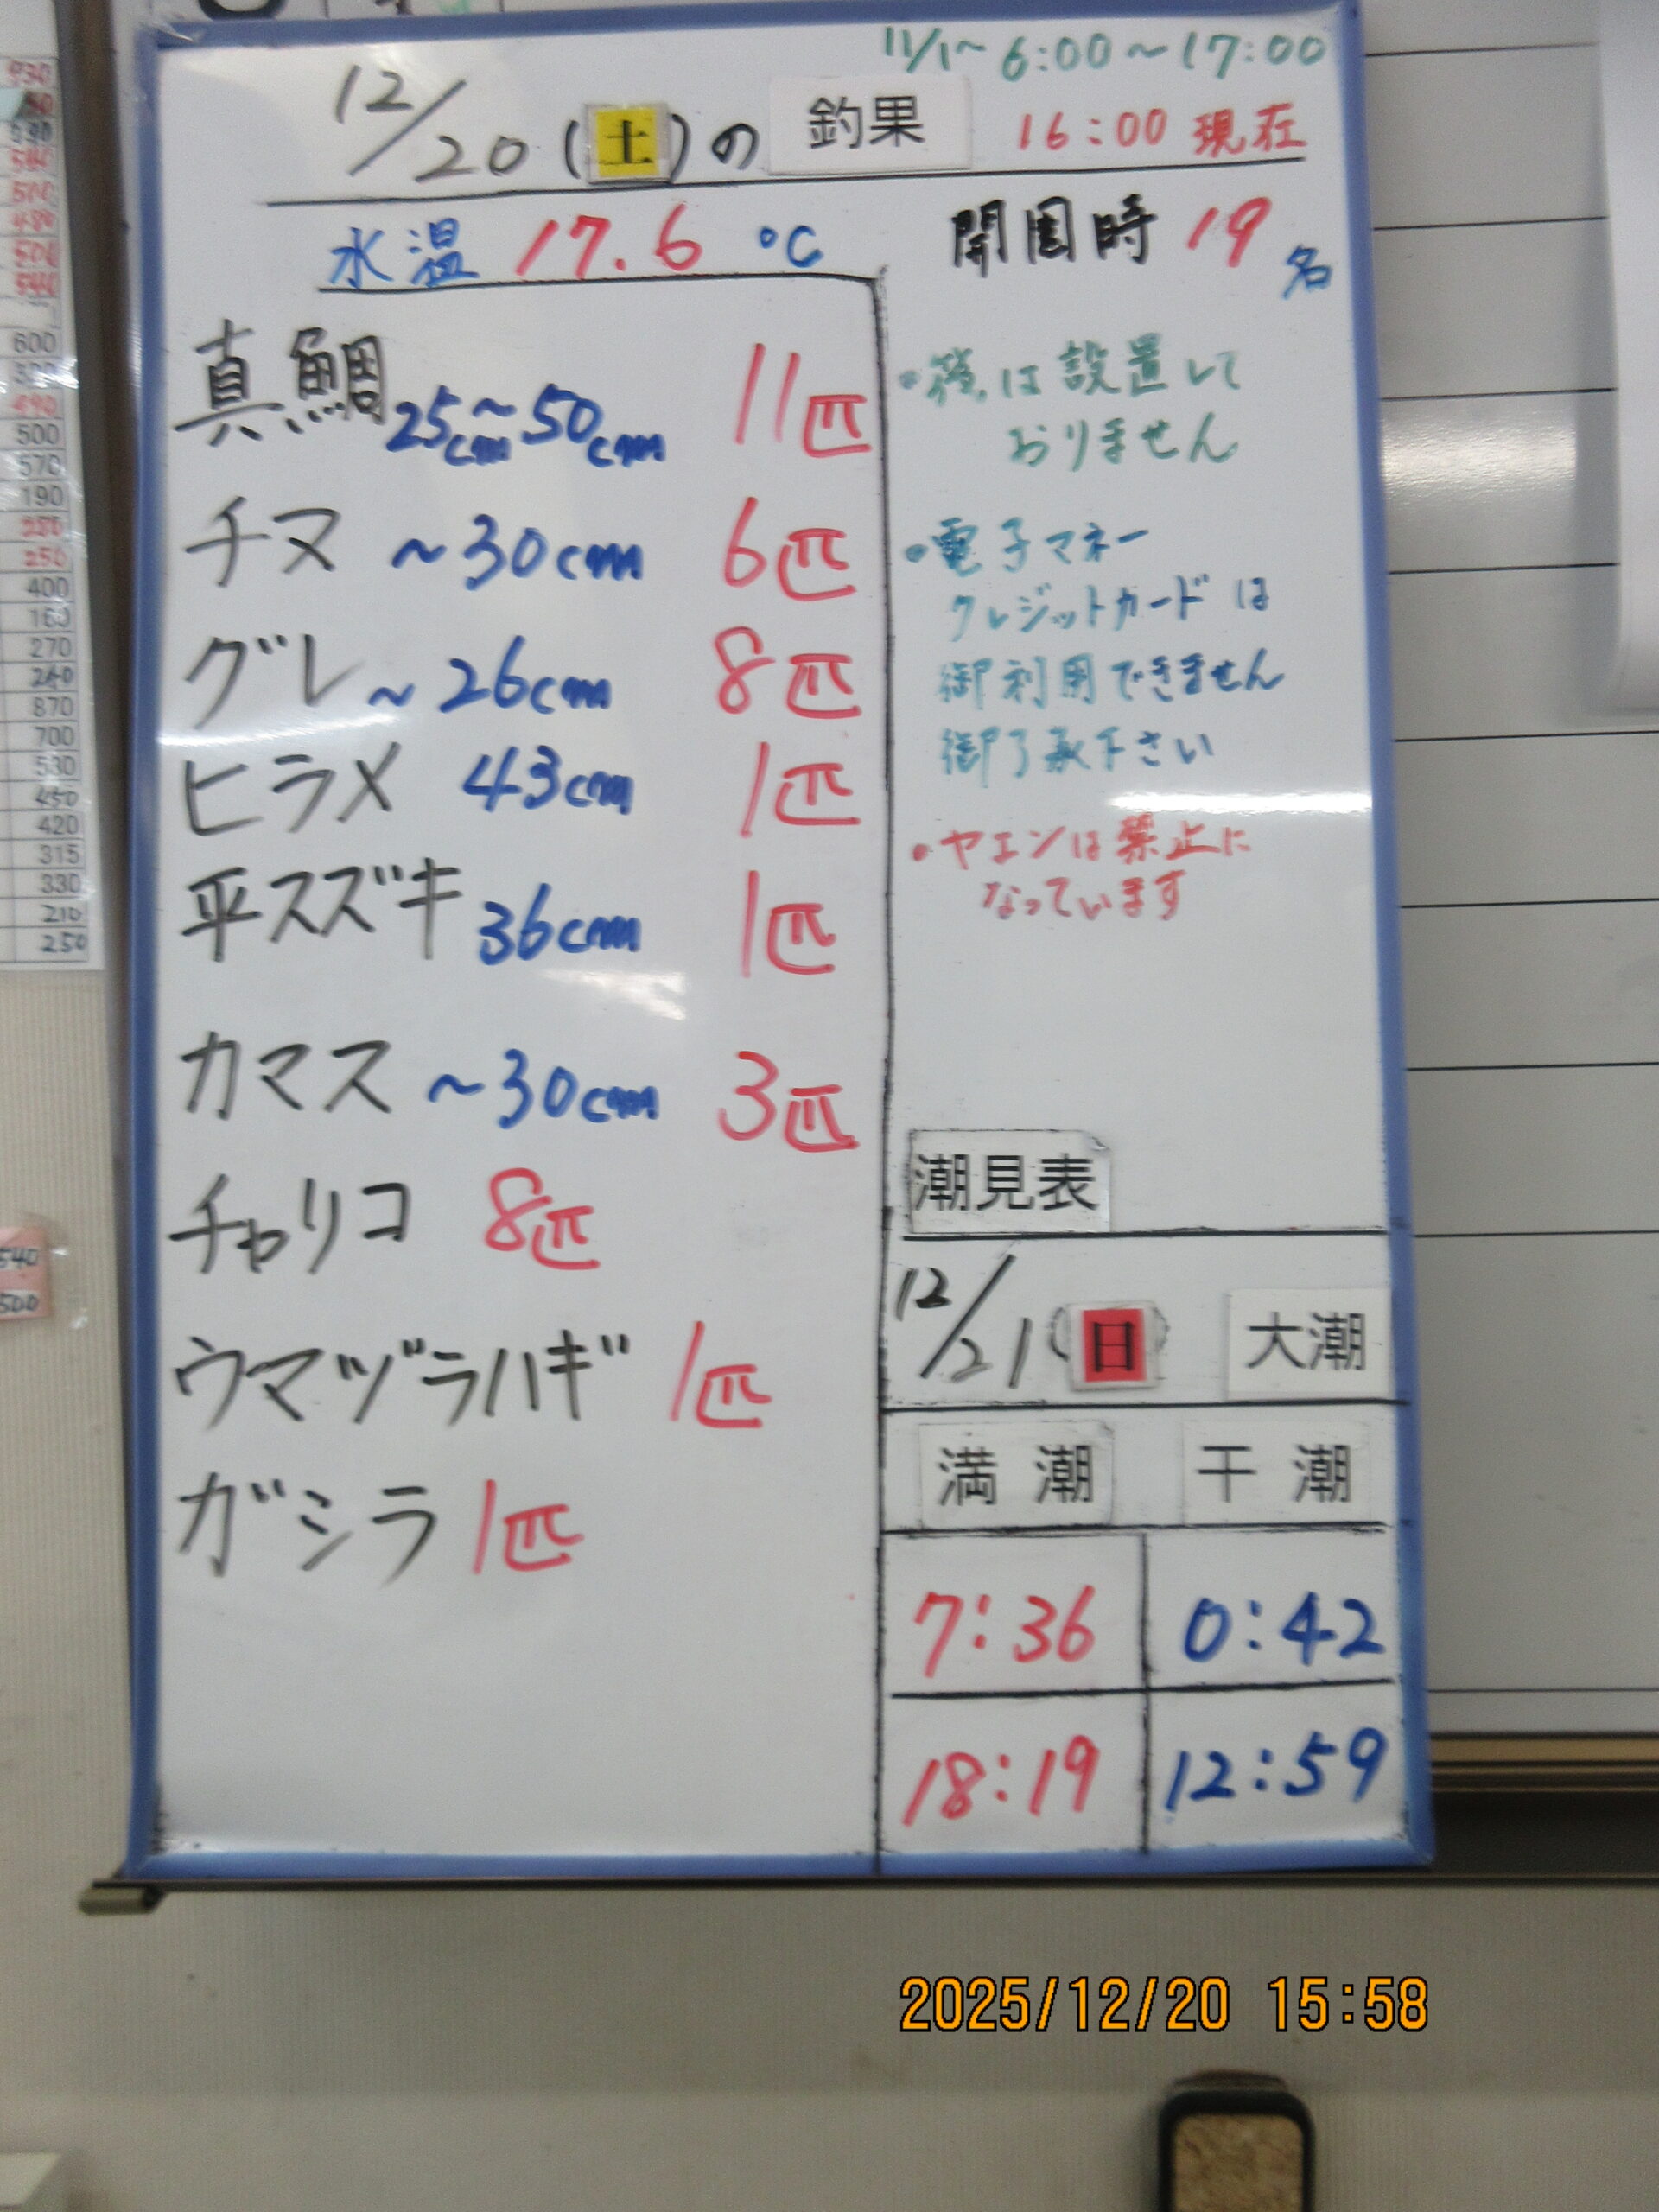 11/1~ 6:00~17:00
12/20(土)の 釣果 16:00 現在
水温 17.6 ℃
開園時 19名
真鯛 25cm~50cm 11匹
チヌ ~30cm 6匹
グレ ~26cm 8匹
ヒラメ 43cm 1匹
平スズキ 36cm 1匹
カマス ~30cm 3匹
チャリコ 8匹
ウマヅラハギ 1匹
ガシラ 1匹
は設置して
おりません
・電子マネー
クレジットカードは
御利用できません
御了承下さい
・ヤエンは禁止に
なっています
潮見表
12/21(日) 大潮
満潮 干潮
7:36 0:42
18:19 12:59
600
500
570
190
280
250
400
160
270
260
870
700
530
450
420
315
330
210
250
540
500
2025/12/20 15:58